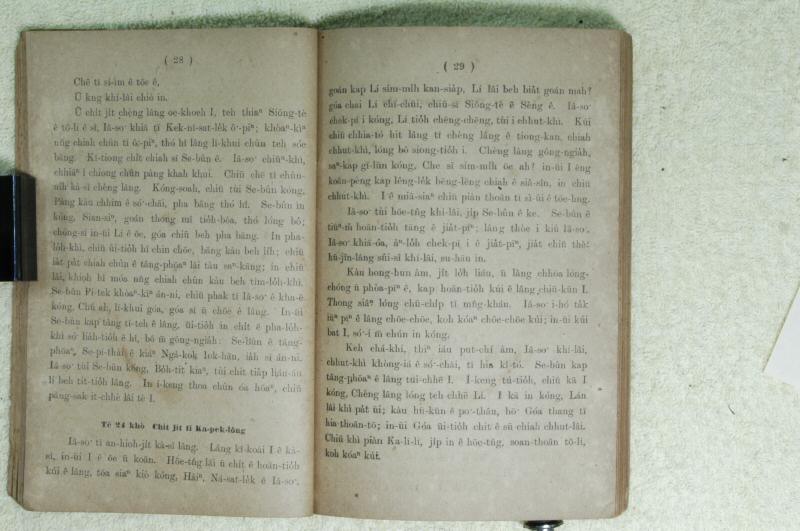 ( 28 )
Chē tī sí-ìm ê tōe ê,
Ū kng khí-lâi chiò in.
Ū chi̍t ji̍t chèng lâng oe-khoeh I, teh thiaⁿ Siōng-tè
ê tō-lí ê sî, Iâ-so͘ khiā tī Kek-nî-sat-lе̍k ô͘-piⁿ; khòaⁿ-kìⁿ
nn̄g chiah chûn tī ô͘-piⁿ, thó hî lâng lī-khui chûn teh sóe
bāng. Kî-tiong chi̍t chiah sī Se-bûn ê. Iâ-so͘ chiūⁿ-khì,
chhiáⁿ i chiong chûn pàng khah khui. Chiū chē tī chûn-
ni̍h kà-sī chèng lâng. Kóng-soah, chiū tùi Se-bûn kóng,
Pàng kàu chhim ê só͘-chāi, pha bāng thó hî. Se-bûn ìn
kóng, Sian-siⁿ, goán thong mî tio̍h-bôa, thó lóng bô;
chóng-sī in-ūi Lí ê ōe, góa chiū beh pha bāng. In pha-
lo̍h-khì, chiū ûi-tio̍h hî chin chōe, bāng kàu beh li̍h; chiū
ia̍t pa̍t chiah chûn ê tâng-phōaⁿ lâi tàu saⁿ-kāng; in chiū
lâi, khioh hî móa nn̄g chiah chûn kàu beh tîm-lo̍h-khì.
Se-bûn Pí-tek khòaⁿ-kìⁿ án-ni, chiū phak tī Iâ-so͘ ê kha-ē
kóng, Chú ah, lī-khui góa, góa sī ū chōe ê lâng. In-ūi
Se-bûn kap tâng tī-teh ê lâng, ûi-tio̍h in chit ê pha-lo̍h-
khì só͘ lia̍h-tio̍h ê hî, bô m̄ gông-ngia̍h: Se-bûn ê tâng-
phōaⁿ, Se-pí-thài ê kiáⁿ Ngá-kok Iok-hān, ia̍h sī án-ni.
Iâ-so͘ tùi Se-bûn kóng, Bo̍h-tit kiaⁿ, tùi chit tia̍p í-āu
lí beh tit-tio̍h lâng. In í-keng thoa chûn óa hōaⁿ, chiū
pàng-sak it-chhè lâi tè I.
Tē 24 khò Chi̍t ji̍t tī Ka-pek-lông
Iâ-so͘ tī an-hioh-ji̍t kà-sī lâng. Lâng kî-koài I ê kà-
sī, in-ūi I ê ōe ū koân. Hōe-tn̂g lāi ū chi̍t ê hoān-tio̍h
kúi ê lâng, tōa siaⁿ kiò kóng, Hāiⁿ, Ná-sat-le̍k ê Iâ-so͘,
( 29 )
goán kap Lí sím-mi̍h kan-sia̍p, Lí lâi beh bia̍t goán mah?
góa chai Lí chī-chūi, chiū-sī Siōng-tè ê Sèng ê. Iâ-so͘
chek-pī i kóng, Lí tio̍h chēng-chēng, tùi i chhut-khì. Kúi
chiū chhia-tó hit lâng tī chèng lâng ê tiong-kan, chiah
chhut-khì, lóng bô siong-tio̍h i. Chèng lâng gông-ngia̍h,
saⁿ-kap gī-lūn kóng, Che sī sím-mi̍h ōe ah! in-ūi I ēng
koân-pèng kap lêng-le̍k bēng-lēng chiah ê siâ-sîn, in chiū
chhut-khì. I ê miâ-siaⁿ chiū piàn thoân tī sì-ûi ê tōe-hng.
Iâ-so͘ tùi hōe-tn̂g khí-lâi, ji̍p Se-bûn ê ke. Se-bûn ê
tiūⁿ-ḿ hoān-tio̍h tāng ê jia̍t-pīⁿ; lâng thòe i kiû Iâ-so͘.
Iâ-so͘ khiā-óa, àⁿ-lo̍h chek-pī i ê jia̍t-pīⁿ, jia̍t chiū thè!
hū-jîn-lâng sûi-sî khí-lâi, su-hāu in.
Kàu hong-hun àm, ji̍t lo̍h liáu, ū lâng chhōa lóng-
chóng ū phòa-pīⁿ ê, kap hoān-tio̍h kúi ê lâng chiū-kūn I.
Thong siâⁿ lóng chū-chi̍p tī mn̂g-kháu. Iâ-so͘ i-hó ta̍k
iūⁿ pīⁿ ê lâng chōe-chōe, koh kóaⁿ chōe-chōe kúi; in-ūi kúi
bat I, só͘-í m̄ chún in kóng.
Keh chá-khí, thiⁿ iáu put-chí àm, Iâ-so͘ khí-lâi,
chhut-khì khòng-iá ê só͘-chāi, tī hia kî-tó. Se-bûn kap
tâng-phōaⁿ ê lâng tui-chhē I. Í-keng tú-tio̍h, chiū kā I
kóng, Chèng lâng lóng teh chhē Lí. I kā in kóng, Lán
lâi khì pa̍t ūi; kàu hū-kūn ê po͘-thâu, hō͘ Góa thang tī
hia thoân-tō; in-ūi Góa ūi-tio̍h chit ê sū chiah chhut-lâi.
Chiū khì piàn Ka-lī-lī, ji̍p in ê hōe-tn̂g, soan-thoân tō-lí,
koh kóaⁿ kúi.